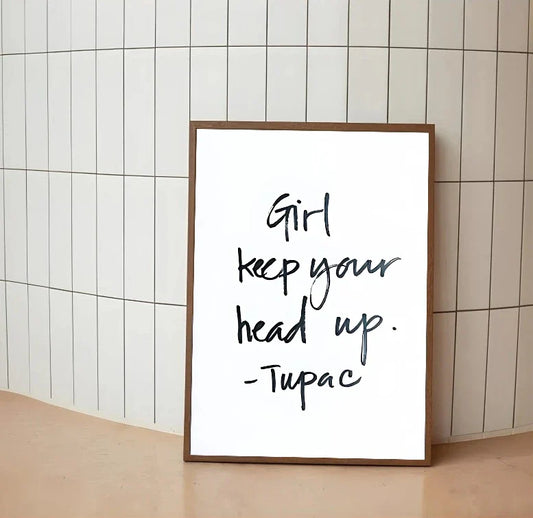 Girl
keep your
head up.
-Tupac